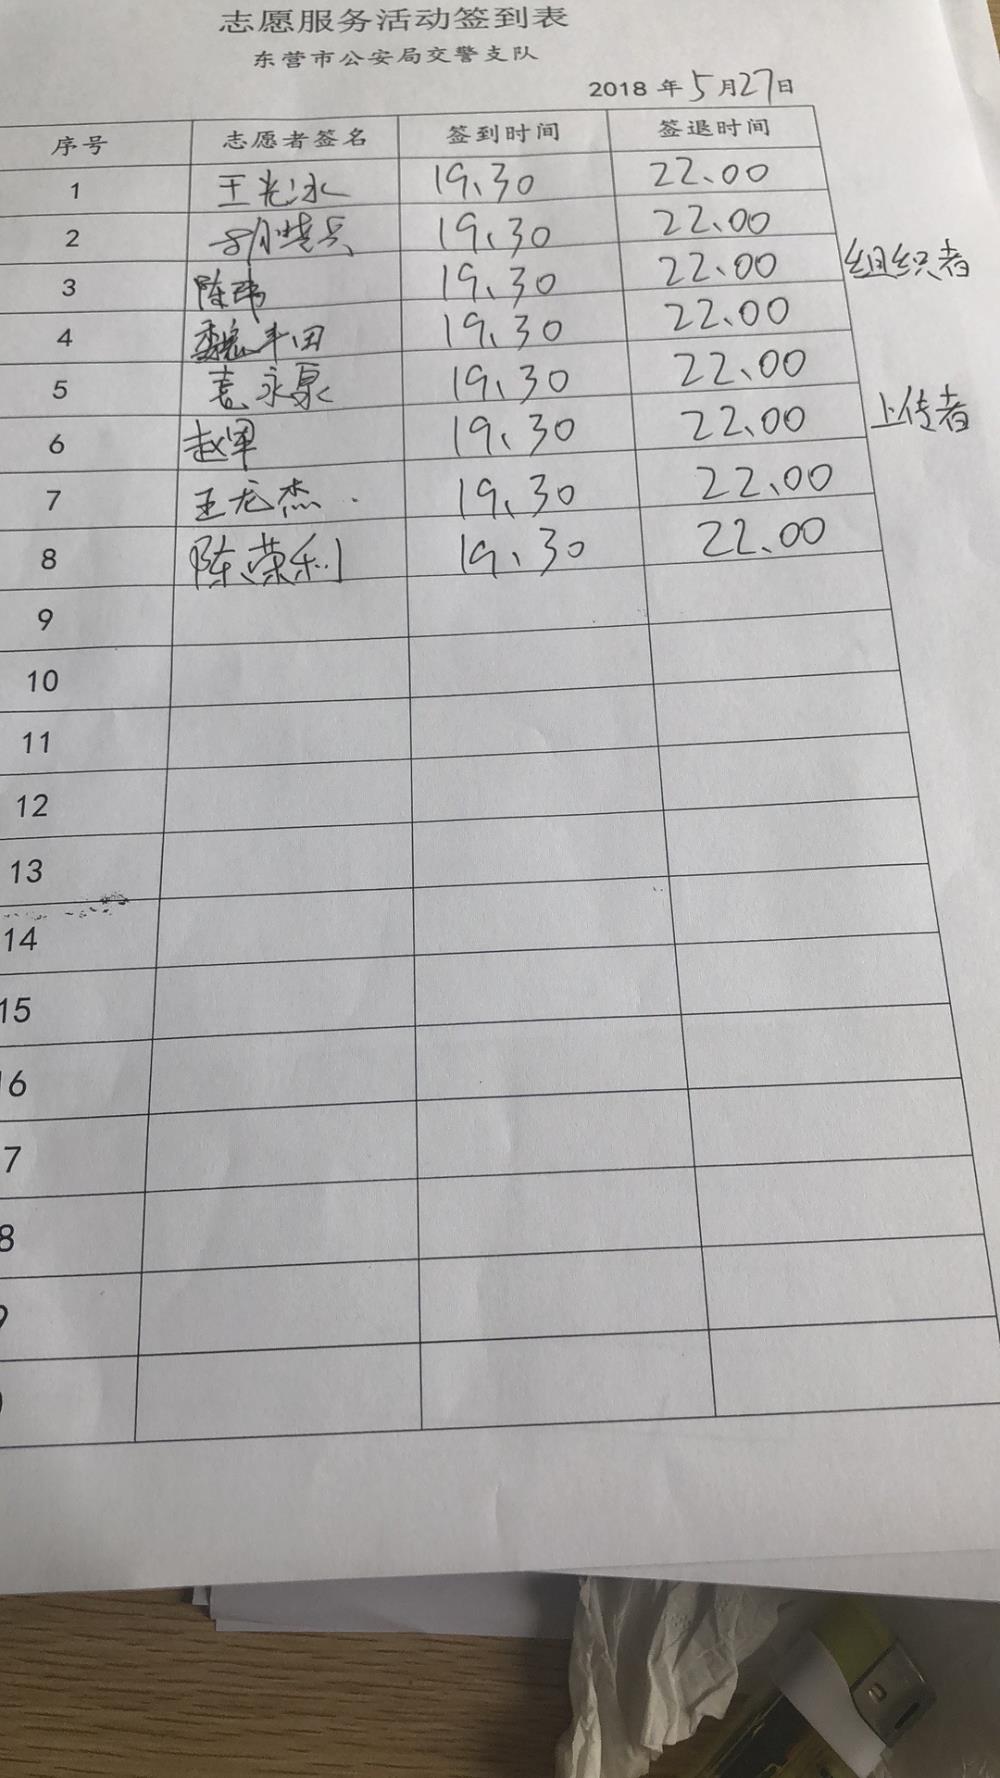 志愿服务活动签到表
东营市公安局交警支队
2018 年 5 月 27 日
序号 志愿者签名 签到时间 签退时间
1 王光冰 19.30 22.00
2 胡晓兵 19.30 22.00
3 陈玮 19.30 22.00 组织者
4 魏丰田 19.30 22.00
5 袁永泉 19.30 22.00
6 赵军 19.30 22.00 上传者
7 王龙杰 19.30 22.00
8 陈荣利 19.30 22.00
9
10
11
12
13
14
15
16
7
8
9